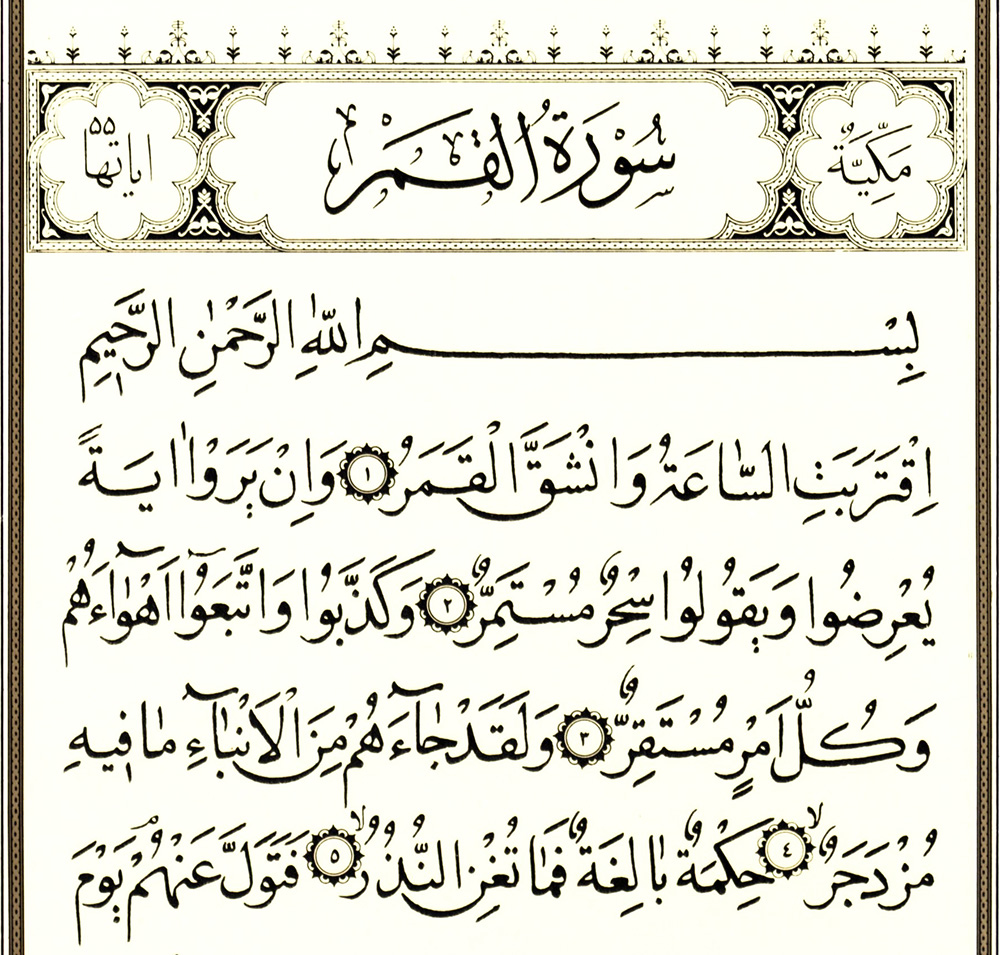 مَكِّيَّةٌ سُورَةُ الْقَمَرِ اياتها ٥٥
بِسْمِ اللّٰهِ الرَّحْمٰنِ الرَّحٖيمِ
اِقْتَرَبَتِ السَّاعَةُ وَانْشَقَّ الْقَمَرُ ١ وَاِنْ يَرَوْا اٰيَةً
يُعْرِضُوا وَيَقُولُوا سِحْرٌ مُسْتَمِرٌّ ٢ وَكَذَّبُوا وَاتَّبَعُٓوا اَهْوَٓاءَهُمْ
وَكُلُّ اَمْرٍ مُسْتَقِرٌّ ٣ وَلَقَدْ جَٓاءَهُمْ مِنَ الْاَنْبَٓاءِ مَا فٖيهِ
مُزْدَجَرٌ ٤ حِكْمَةٌ بَالِغَةٌ فَمَا تُغْنِ النُّذُرُ ٥ فَتَوَلَّ عَنْهُمْ يَوْمَ